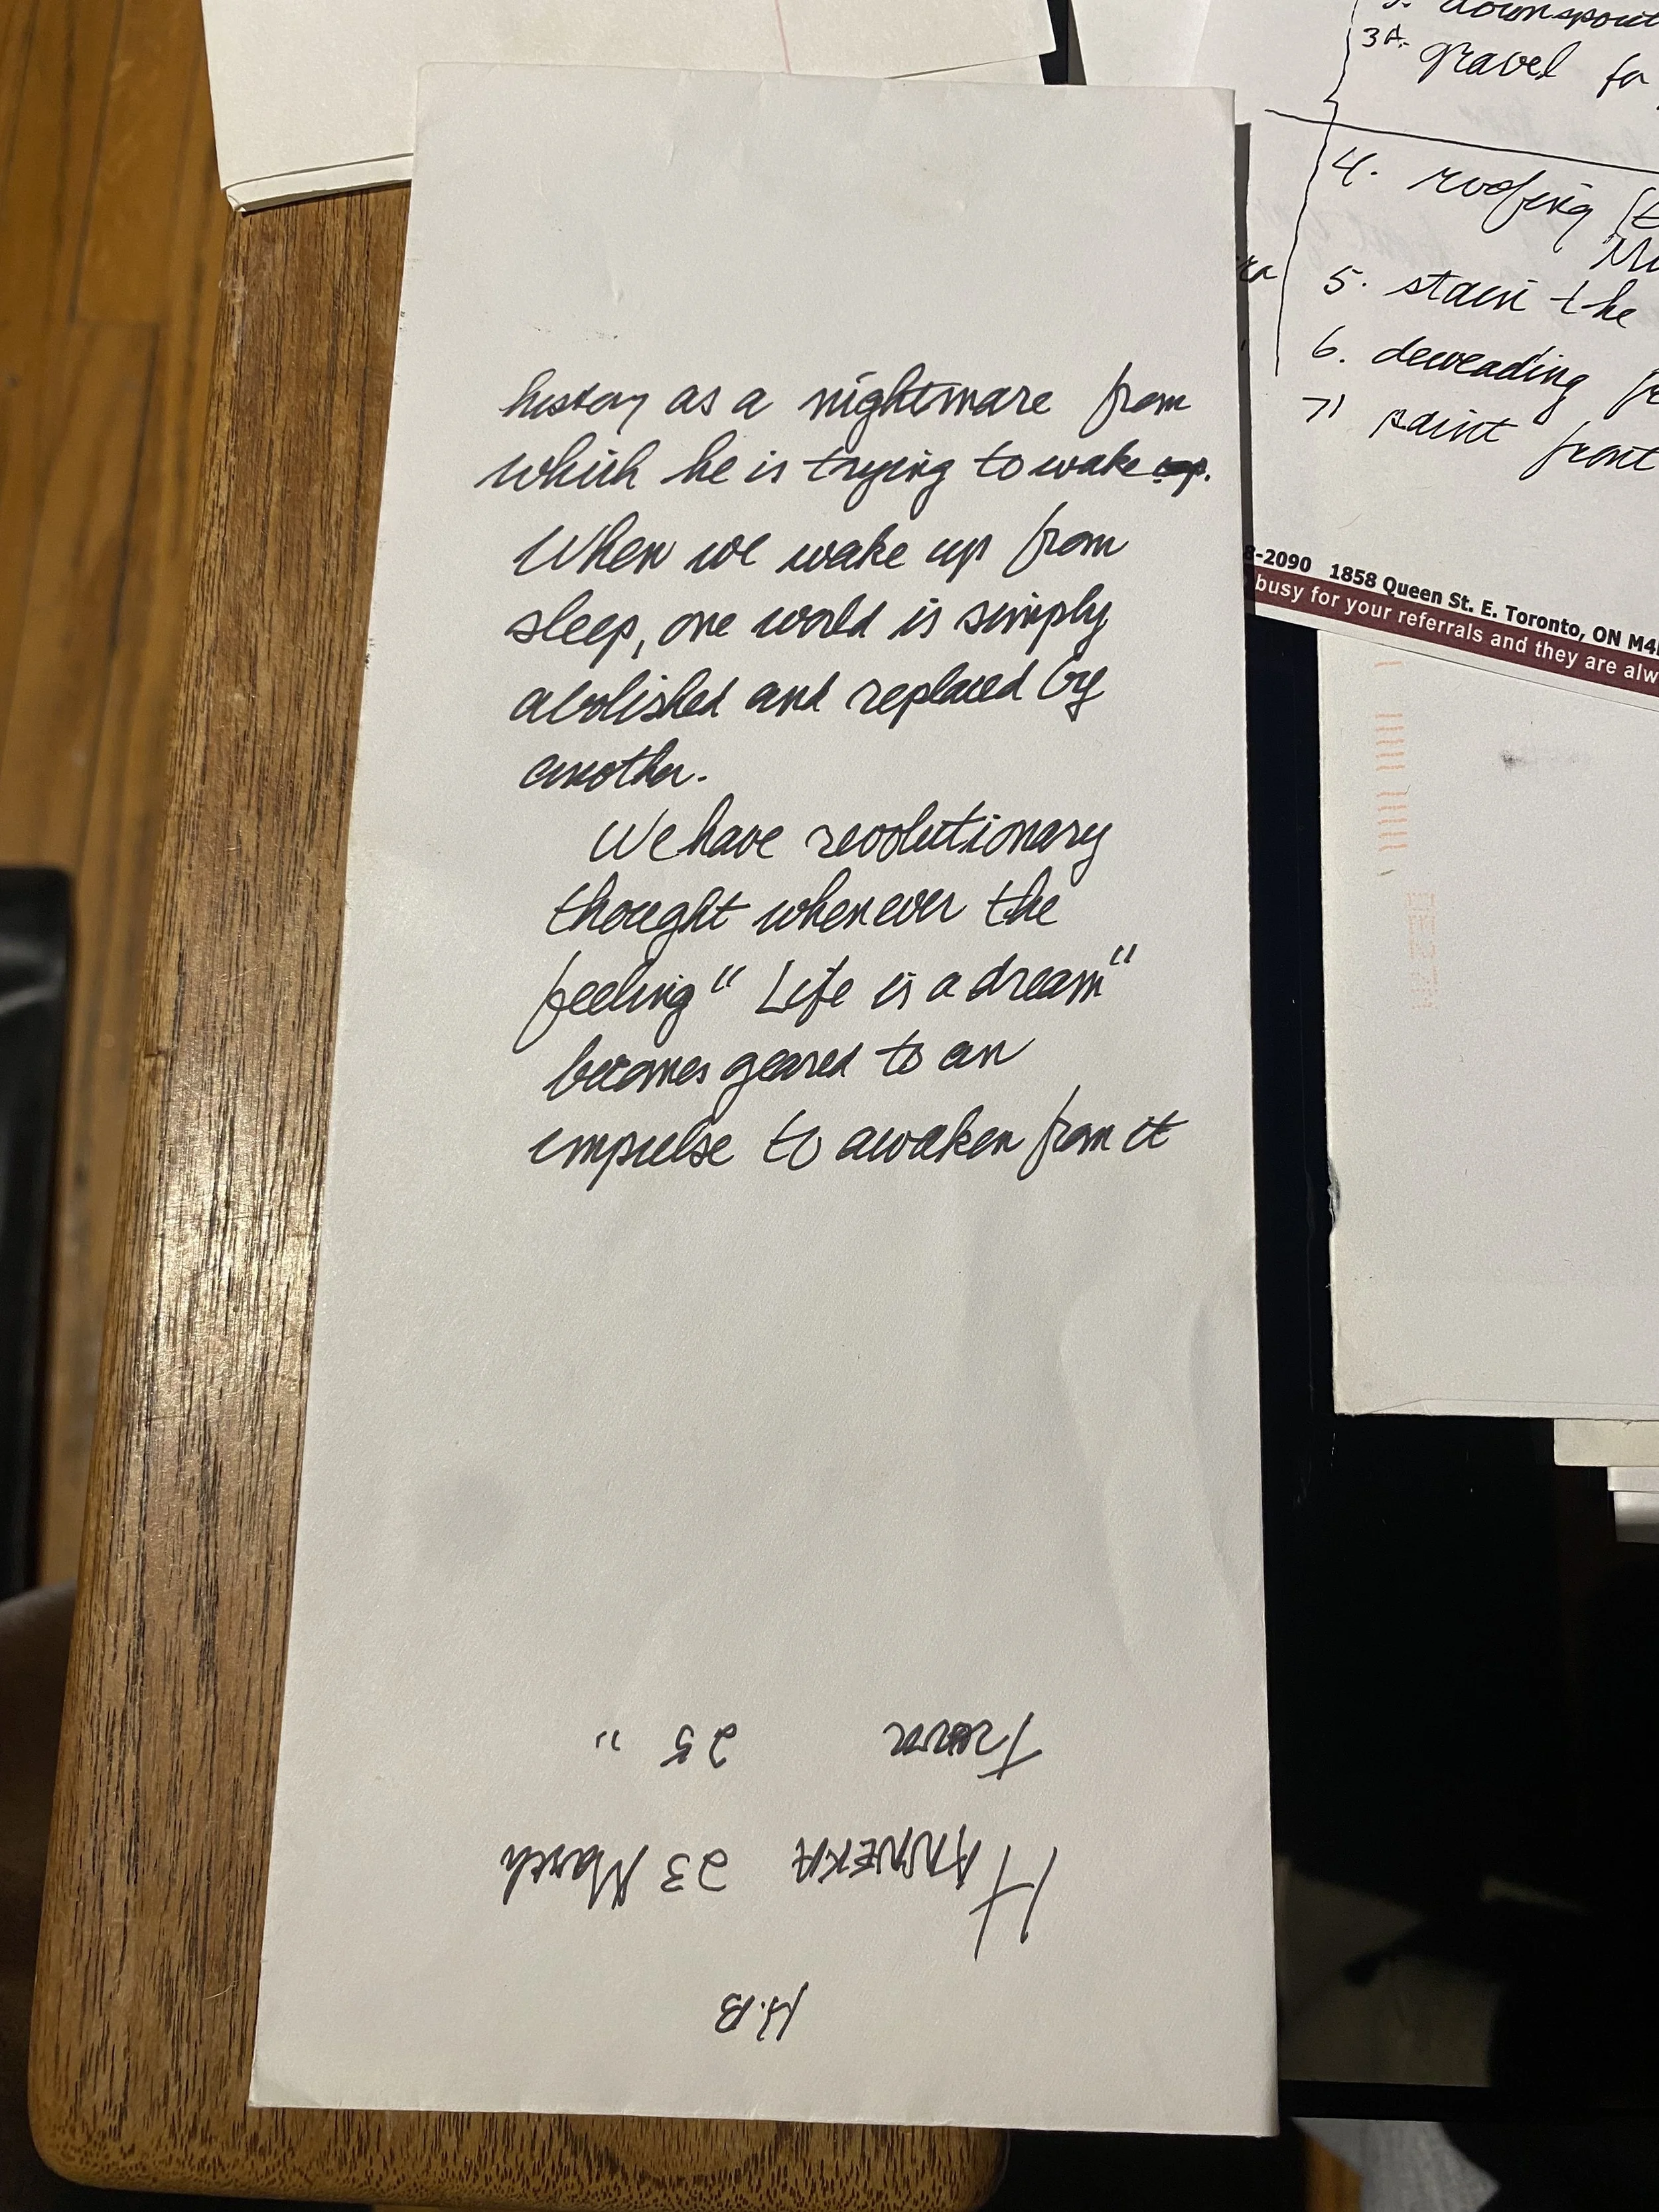 history as a nightmare from
which he is trying to wake up.
When we wake up from
sleep, one world is simply
abolished and replaced by
another.
We have revolutionary
thought whenever the
feeling " Life is a dream"
becomes geared to an
impulse to awaken from it
H.B
HANNEKA 23 March
25 "
downspout
3A. gravel for
4. roofing
5. stain the
6. deweading
7) paint front
8-2090 1858 Queen St. E. Toronto, ON M4
busy for your referrals and they are alw